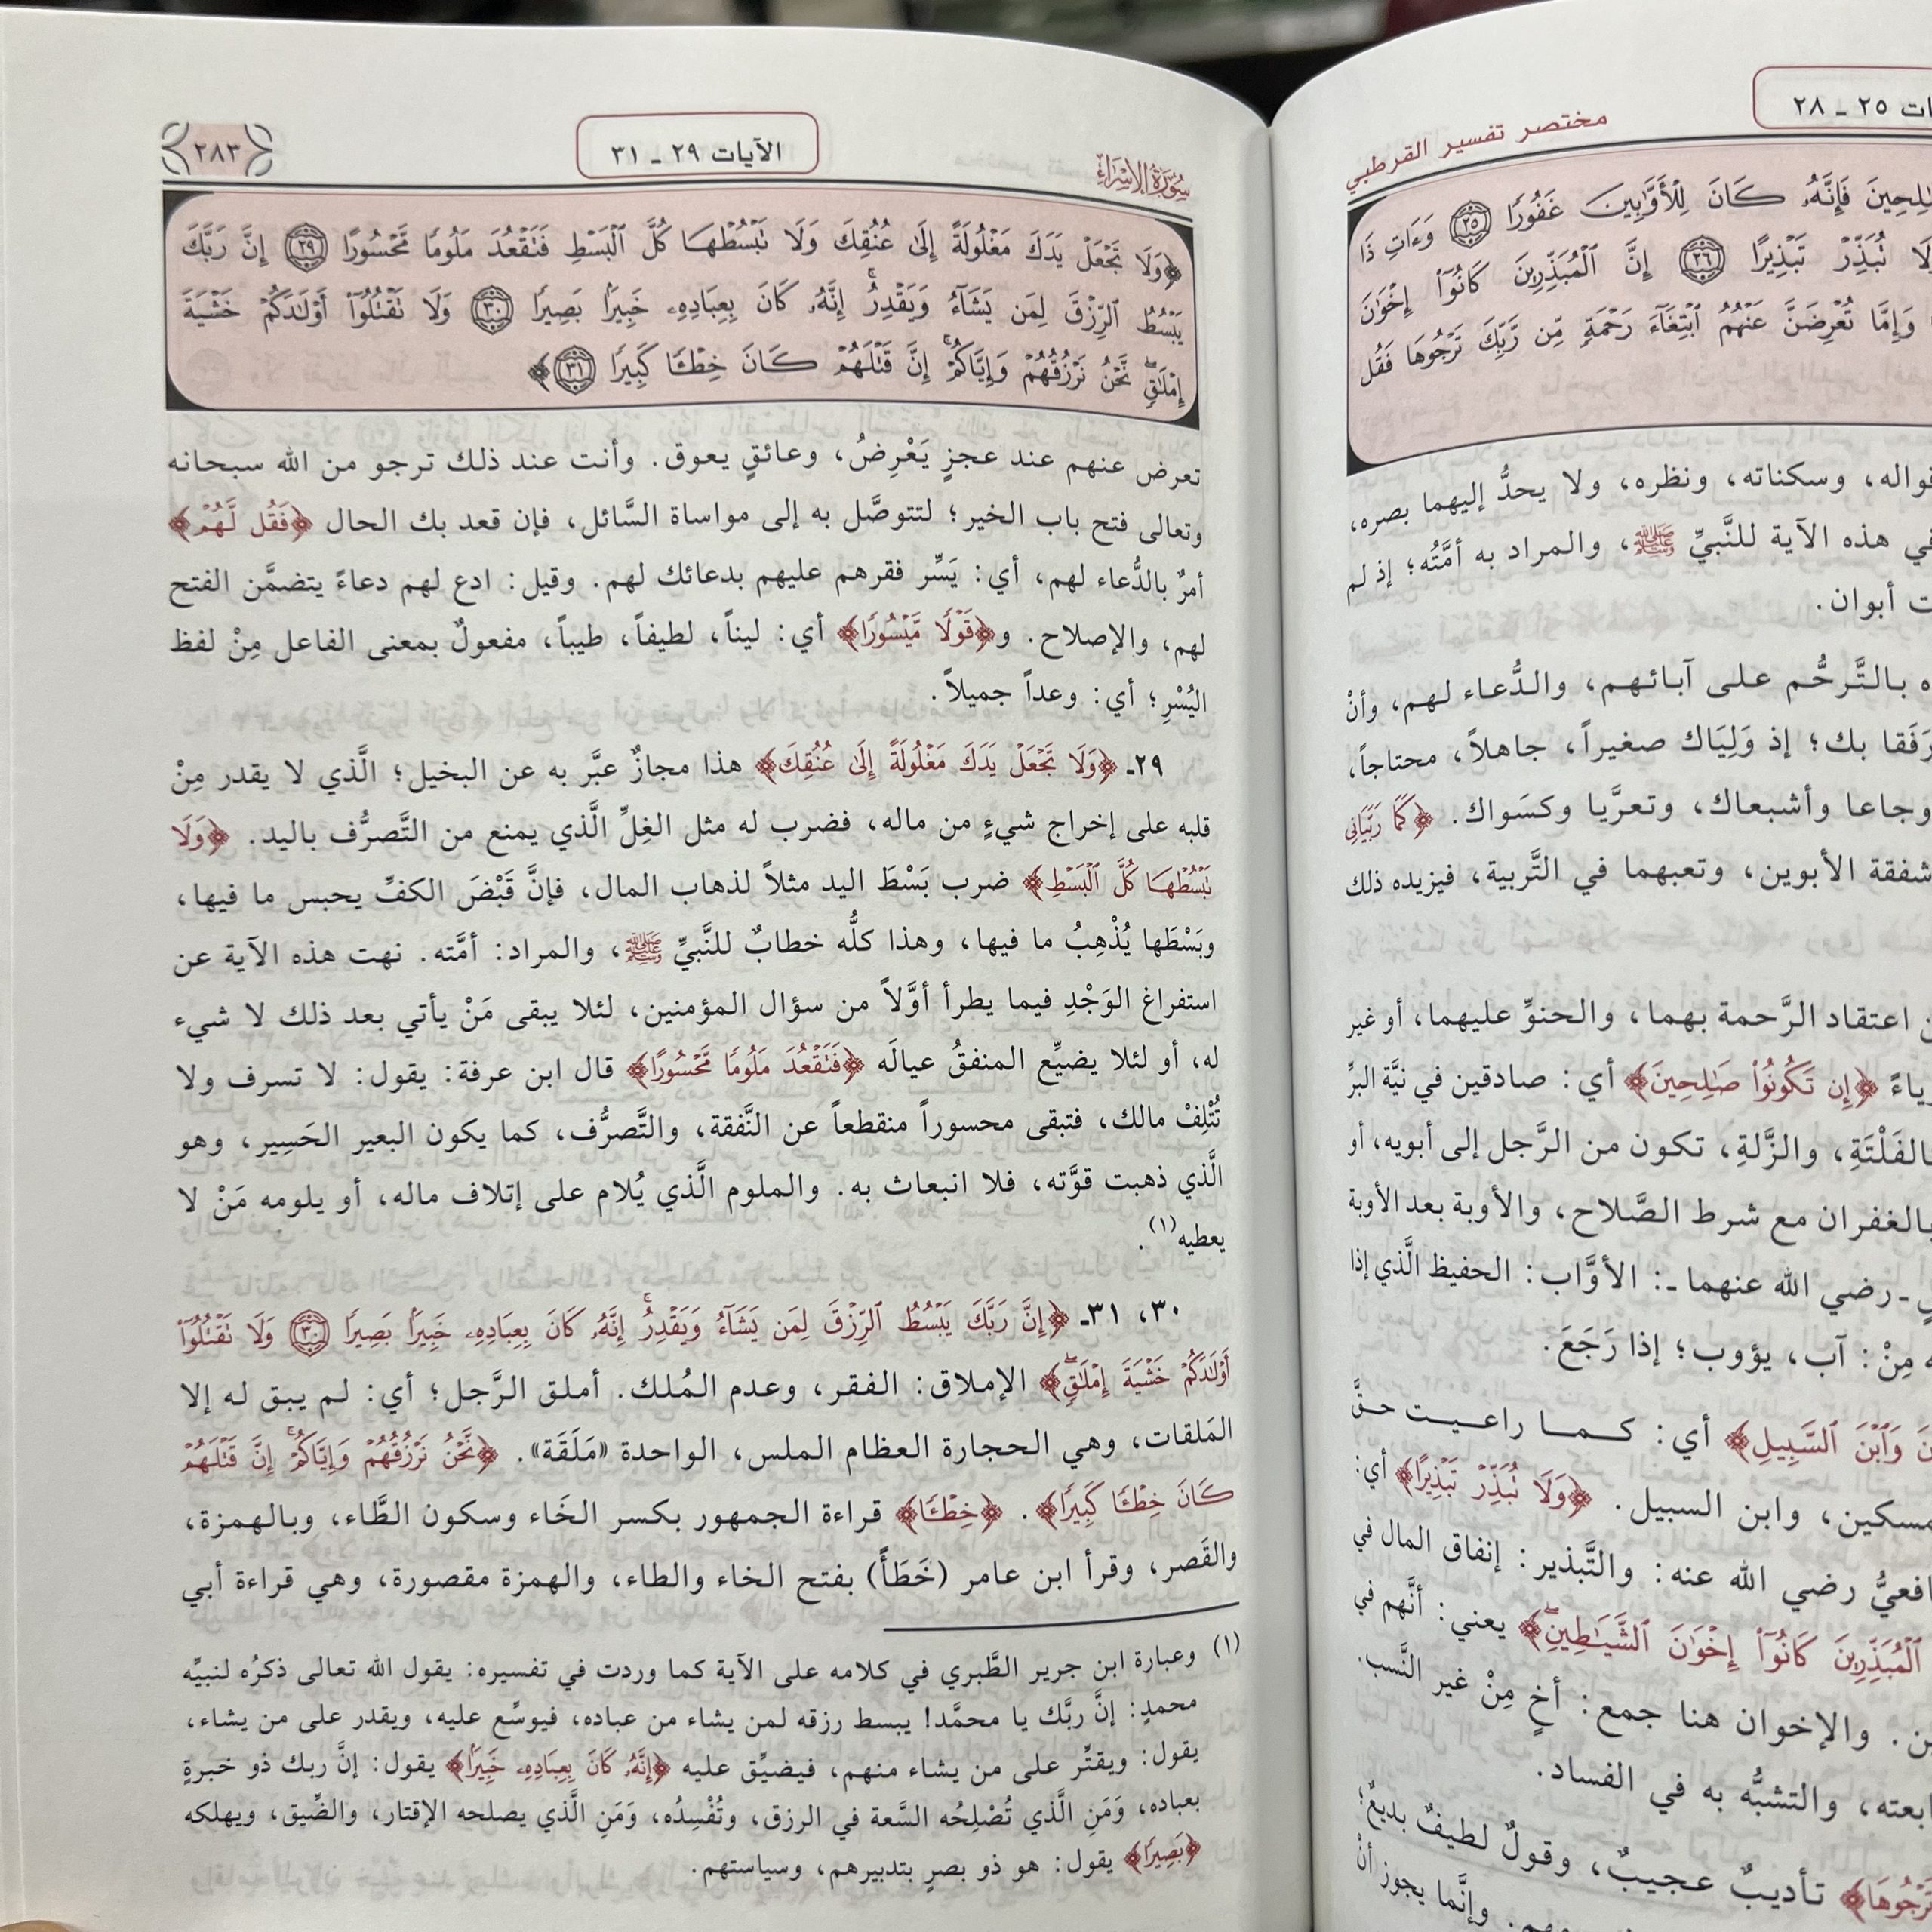 مختصر تفسير القرطبي
ـات ٢٥ ـ ٢٨
فَإِنَّهُۥ كَانَ لِلْأَوَّٰبِينَ غَفُورًا ٢٥ وَءَاتِ ذَا
تُبَذِّرْ تَبْذِيرًا ٢٦ إِنَّ ٱلْمُبَذِّرِينَ كَانُوٓا۟ إِخْوَٰنَ
وَإِمَّا تُعْرِضَنَّ عَنْهُمُ ٱبْتِغَآءَ رَحْمَةٍ مِّن رَّبِّكَ تَرْجُوهَا فَقُل
وسكناته، ونظره، ولا يحدُّ إليهما بصره،
في هذه الآية للنَّبيِّ ﷺ، والمراد به أمَّتُه؛ إذ لم
أبوان.
بالتَّرحُّم على آبائهم، والدُّعاء لهم، وأنْ
رَفَقا بك؛ إذ وَلِيَاك صغيراً، جاهلاً، محتاجاً،
وجاعا وأشبعاك، وتعرَّيا وكسَواك. ﴿كَمَا رَبَّيَانِى
شفقة الأبوين، وتعبهما في التَّربية، فيزيده ذلك
اعتقاد الرَّحمة بهما، والحنوِّ عليهما، أو غير
رياءً ﴿إِن تَكُونُوا۟ صَٰلِحِينَ﴾ أي: صادقين في نيَّة البرِّ
الفَلْتَةِ، والزَّلةِ، تكون من الرَّجل إلى أبويه، أو
بالغفران مع شرط الصَّلاح، والأوبة بعد الأوبة
ـ رضي الله عنهما ـ: الأوَّاب: الحفيظ الَّذي إذا
مِنْ: آب، يؤوب؛ إذا رَجَعَ.
وَٱبْنَ ٱلسَّبِيلِ﴾ أي: كما راعيت حقَّ
وابن السبيل. ﴿وَلَا تُبَذِّرْ تَبْذِيرًا﴾ أي:
رضي الله عنه: والتَّبذير: إنفاق المال في
ٱلْمُبَذِّرِينَ كَانُوٓا۟ إِخْوَٰنَ ٱلشَّيَٰطِينِ﴾ يعني: أنَّهم في
والإخوان هنا جمع: أخٍ مِنْ غير النَّسب.
والتشبُّه به في الفساد.
تأديبٌ عجيبٌ، وقولٌ لطيفٌ بديعٌ؛
وإنَّما يجوز أنْ
سُورَةُ الإِسْرَاءِ
الآيات ٢٩ ـ ٣١
٢٨٣
﴿وَلَا تَجْعَلْ يَدَكَ مَغْلُولَةً إِلَىٰ عُنُقِكَ وَلَا تَبْسُطْهَا كُلَّ ٱلْبَسْطِ فَتَقْعُدَ مَلُومًا مَّحْسُورًا ٢٩ إِنَّ رَبَّكَ
يَبْسُطُ ٱلرِّزْقَ لِمَن يَشَآءُ وَيَقْدِرُ ۚ إِنَّهُۥ كَانَ بِعِبَادِهِۦ خَبِيرًۢا بَصِيرًا ٣٠ وَلَا تَقْتُلُوٓا۟ أَوْلَٰدَكُمْ خَشْيَةَ
إِمْلَٰقٍ ۖ نَّحْنُ نَرْزُقُهُمْ وَإِيَّاكُمْ ۚ إِنَّ قَتْلَهُمْ كَانَ خِطْـًٔا كَبِيرًا ٣١﴾
تعرض عنهم عند عجزٍ يَعْرِضُ، وعائقٍ يعوق. وأنت عند ذلك ترجو من الله سبحانه
وتعالى فتح باب الخير؛ لتتوصَّل به إلى مواساة السَّائل، فإن قعد بك الحال ﴿فَقُل لَّهُمْ﴾
أمرٌ بالدُّعاء لهم، أي: يَسِّر فقرهم عليهم بدعائك لهم. وقيل: ادع لهم دعاءً يتضمَّن الفتح
لهم، والإصلاح. و﴿قَوْلًا مَّيْسُورًا﴾ أي: ليناً، لطيفاً، طيباً، مفعولٌ بمعنى الفاعل مِنْ لفظ
اليُسْرِ؛ أي: وعداً جميلاً.
٢٩ـ ﴿وَلَا تَجْعَلْ يَدَكَ مَغْلُولَةً إِلَىٰ عُنُقِكَ﴾ هذا مجازٌ عبَّر به عن البخيل؛ الَّذي لا يقدر مِنْ
قلبه على إخراج شيءٍ من ماله، فضرب له مثل الغِلِّ الَّذي يمنع من التَّصرُّف باليد. ﴿وَلَا
تَبْسُطْهَا كُلَّ ٱلْبَسْطِ﴾ ضرب بَسْطَ اليد مثلاً لذهاب المال، فإنَّ قَبْضَ الكفِّ يحبس ما فيها،
وبَسْطَها يُذْهِبُ ما فيها، وهذا كلُّه خطابٌ للنَّبيِّ ﷺ، والمراد: أمَّته. نهت هذه الآية عن
استفراغ الوَجْدِ فيما يطرأ أوَّلاً من سؤال المؤمنين، لئلا يبقى مَنْ يأتي بعد ذلك لا شيء
له، أو لئلا يضيِّع المنفقُ عيالَه ﴿فَتَقْعُدَ مَلُومًا مَّحْسُورًا﴾ قال ابن عرفة: يقول: لا تسرف ولا
تُتْلِفْ مالك، فتبقى محسوراً منقطعاً عن النَّفقة، والتَّصرُّف، كما يكون البعير الحَسِير، وهو
الَّذي ذهبت قوَّته، فلا انبعاث به. والملوم الَّذي يُلام على إتلاف ماله، أو يلومه مَنْ لا
يعطيه(١).
٣٠، ٣١ـ ﴿إِنَّ رَبَّكَ يَبْسُطُ ٱلرِّزْقَ لِمَن يَشَآءُ وَيَقْدِرُ ۚ إِنَّهُۥ كَانَ بِعِبَادِهِۦ خَبِيرًۢا بَصِيرًا ٣٠ وَلَا تَقْتُلُوٓا۟
أَوْلَٰدَكُمْ خَشْيَةَ إِمْلَٰقٍ ۖ﴾ الإملاق: الفقر، وعدم المُلك. أملق الرَّجل؛ أي: لم يبق له إلا
المَلقات، وهي الحجارة العظام الملس، الواحدة «مَلَقَة». ﴿نَّحْنُ نَرْزُقُهُمْ وَإِيَّاكُمْ ۚ إِنَّ قَتْلَهُمْ
كَانَ خِطْـًٔا كَبِيرًا﴾. ﴿خِطْـًٔا﴾ قراءة الجمهور بكسر الخَاء وسكون الطَّاء، وبالهمزة،
والقَصر، وقرأ ابن عامر (خَطَأً) بفتح الخاء والطاء، والهمزة مقصورة، وهي قراءة أبي
(١) وعبارة ابن جرير الطَّبري في كلامه على الآية كما وردت في تفسيره: يقول الله تعالى ذكرُه لنبيِّه
محمدٍ: إنَّ ربَّك يا محمَّد! يبسط رزقه لمن يشاء من عباده، فيوسِّع عليه، ويقدر على من يشاء،
يقول: ويقتِّر على من يشاء منهم، فيضيِّق عليه ﴿إِنَّهُۥ كَانَ بِعِبَادِهِۦ خَبِيرًۢا﴾ يقول: إنَّ ربك ذو خبرةٍ
بعباده، وَمَنِ الَّذي تُصْلِحُه السَّعة في الرزق، وتُفْسِدُه، وَمَنِ الَّذي يصلحه الإقتار، والضِّيق، ويهلكه
﴿بَصِيرًا﴾ يقول: هو ذو بصرٍ بتدبيرهم، وسياستهم.